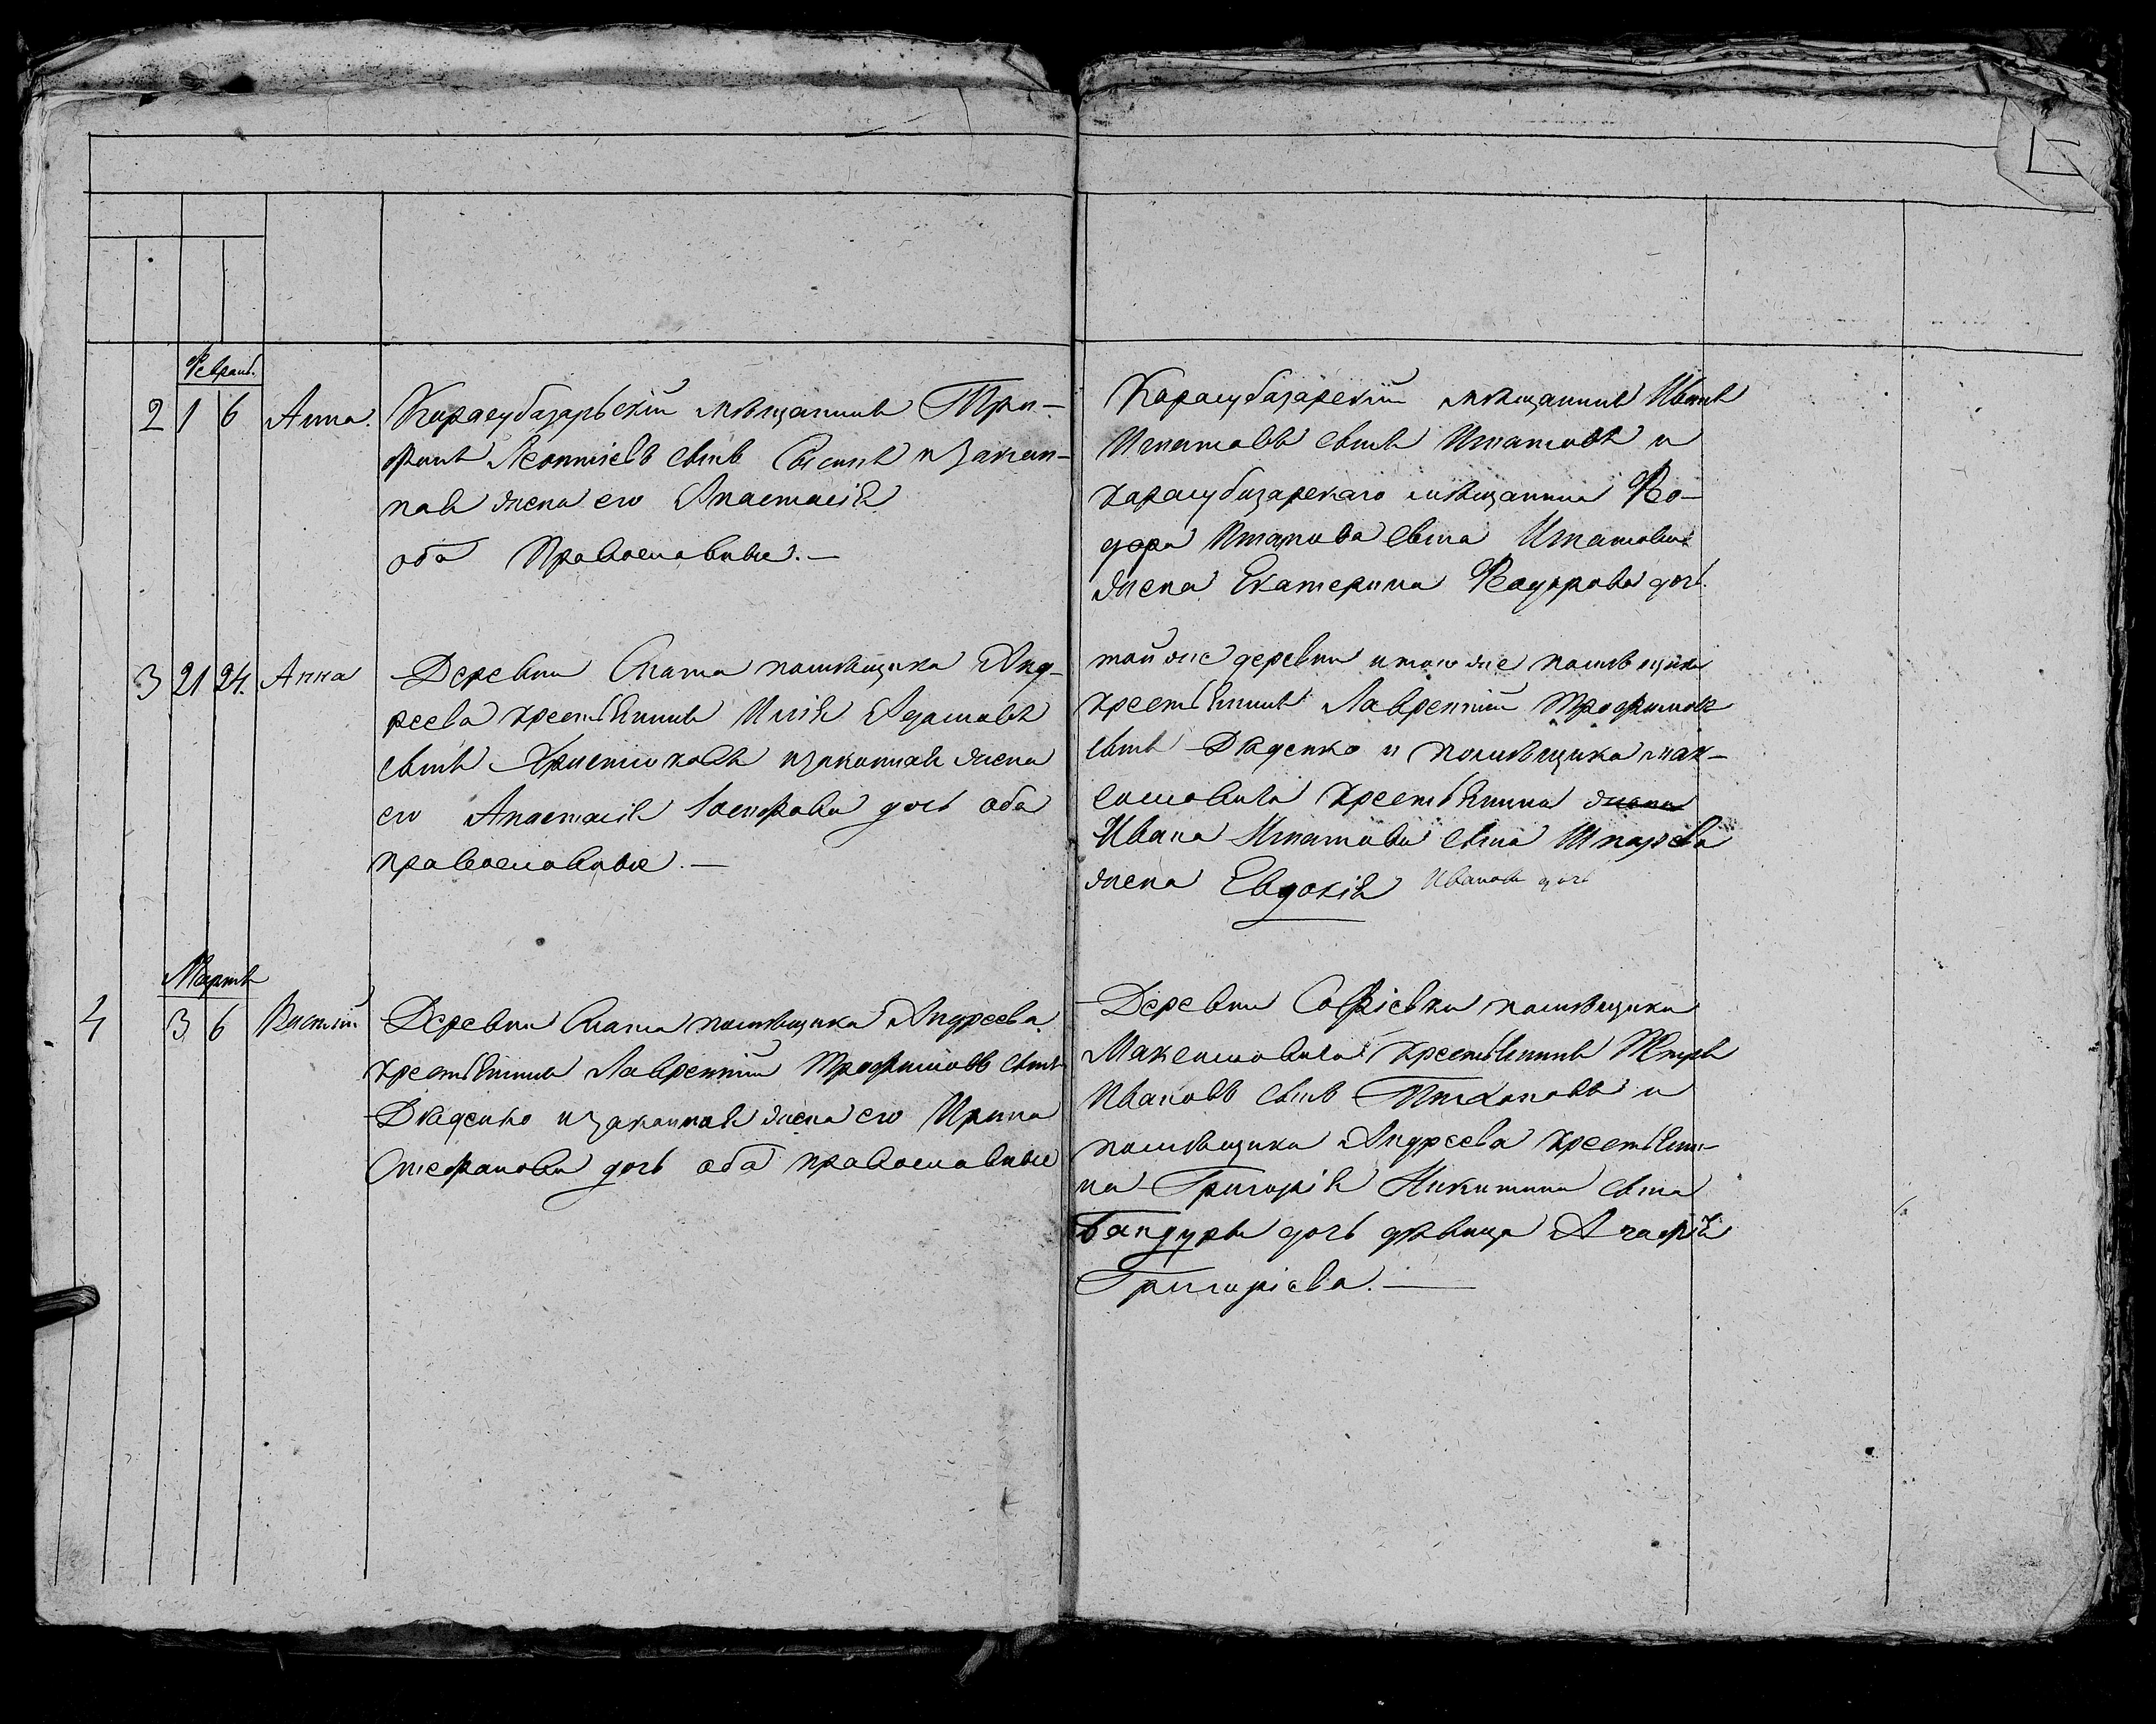 Февраль.
2 1 6 Анна. Карасубазарьскій мѣщанинъ Три-
фонъ Леонтіевъ сынъ и закон-
ная жена его Анастасія
оба Православные. —
Карасубазарскій мѣщанинъ Иванъ
Игнатовъ сынъ Игнатовъ и
карасубазарскаго мѣщанина Фео-
дора Игнатова сына Игнатова
жена Екатерина Феодорова дочь.
3 21 24. Анна Деревни Спата помѣщика Анд-
реева крестьянинъ Илія Адамовъ
сынъ и законная жена
его Анастасія дочь оба
православные. —
той же деревни и того же помѣщика
крестьянинъ Лаврентій Трофимовъ
сынъ Дяденко и помѣщика Мак-
симовича крестьянина жена
Ивана Игнатова сына
жена Евдокія Иванова дочь
Мартъ
4 3 6 Василій Деревни Спата помѣщика Андреева
крестьянинъ Лаврентій Трофимовъ сынъ
Дяденко и законная жена его Ирина
Стефанова дочь оба православные
Деревни Софіевки помѣщика
Максимовича крестьянинъ Петръ
Ивановъ сынъ Тихоновъ и
помѣщика Андреева крестьяни-
на Григорія Никитина сына
Бандуры дочь дѣвица Агафія
Григоріева. —